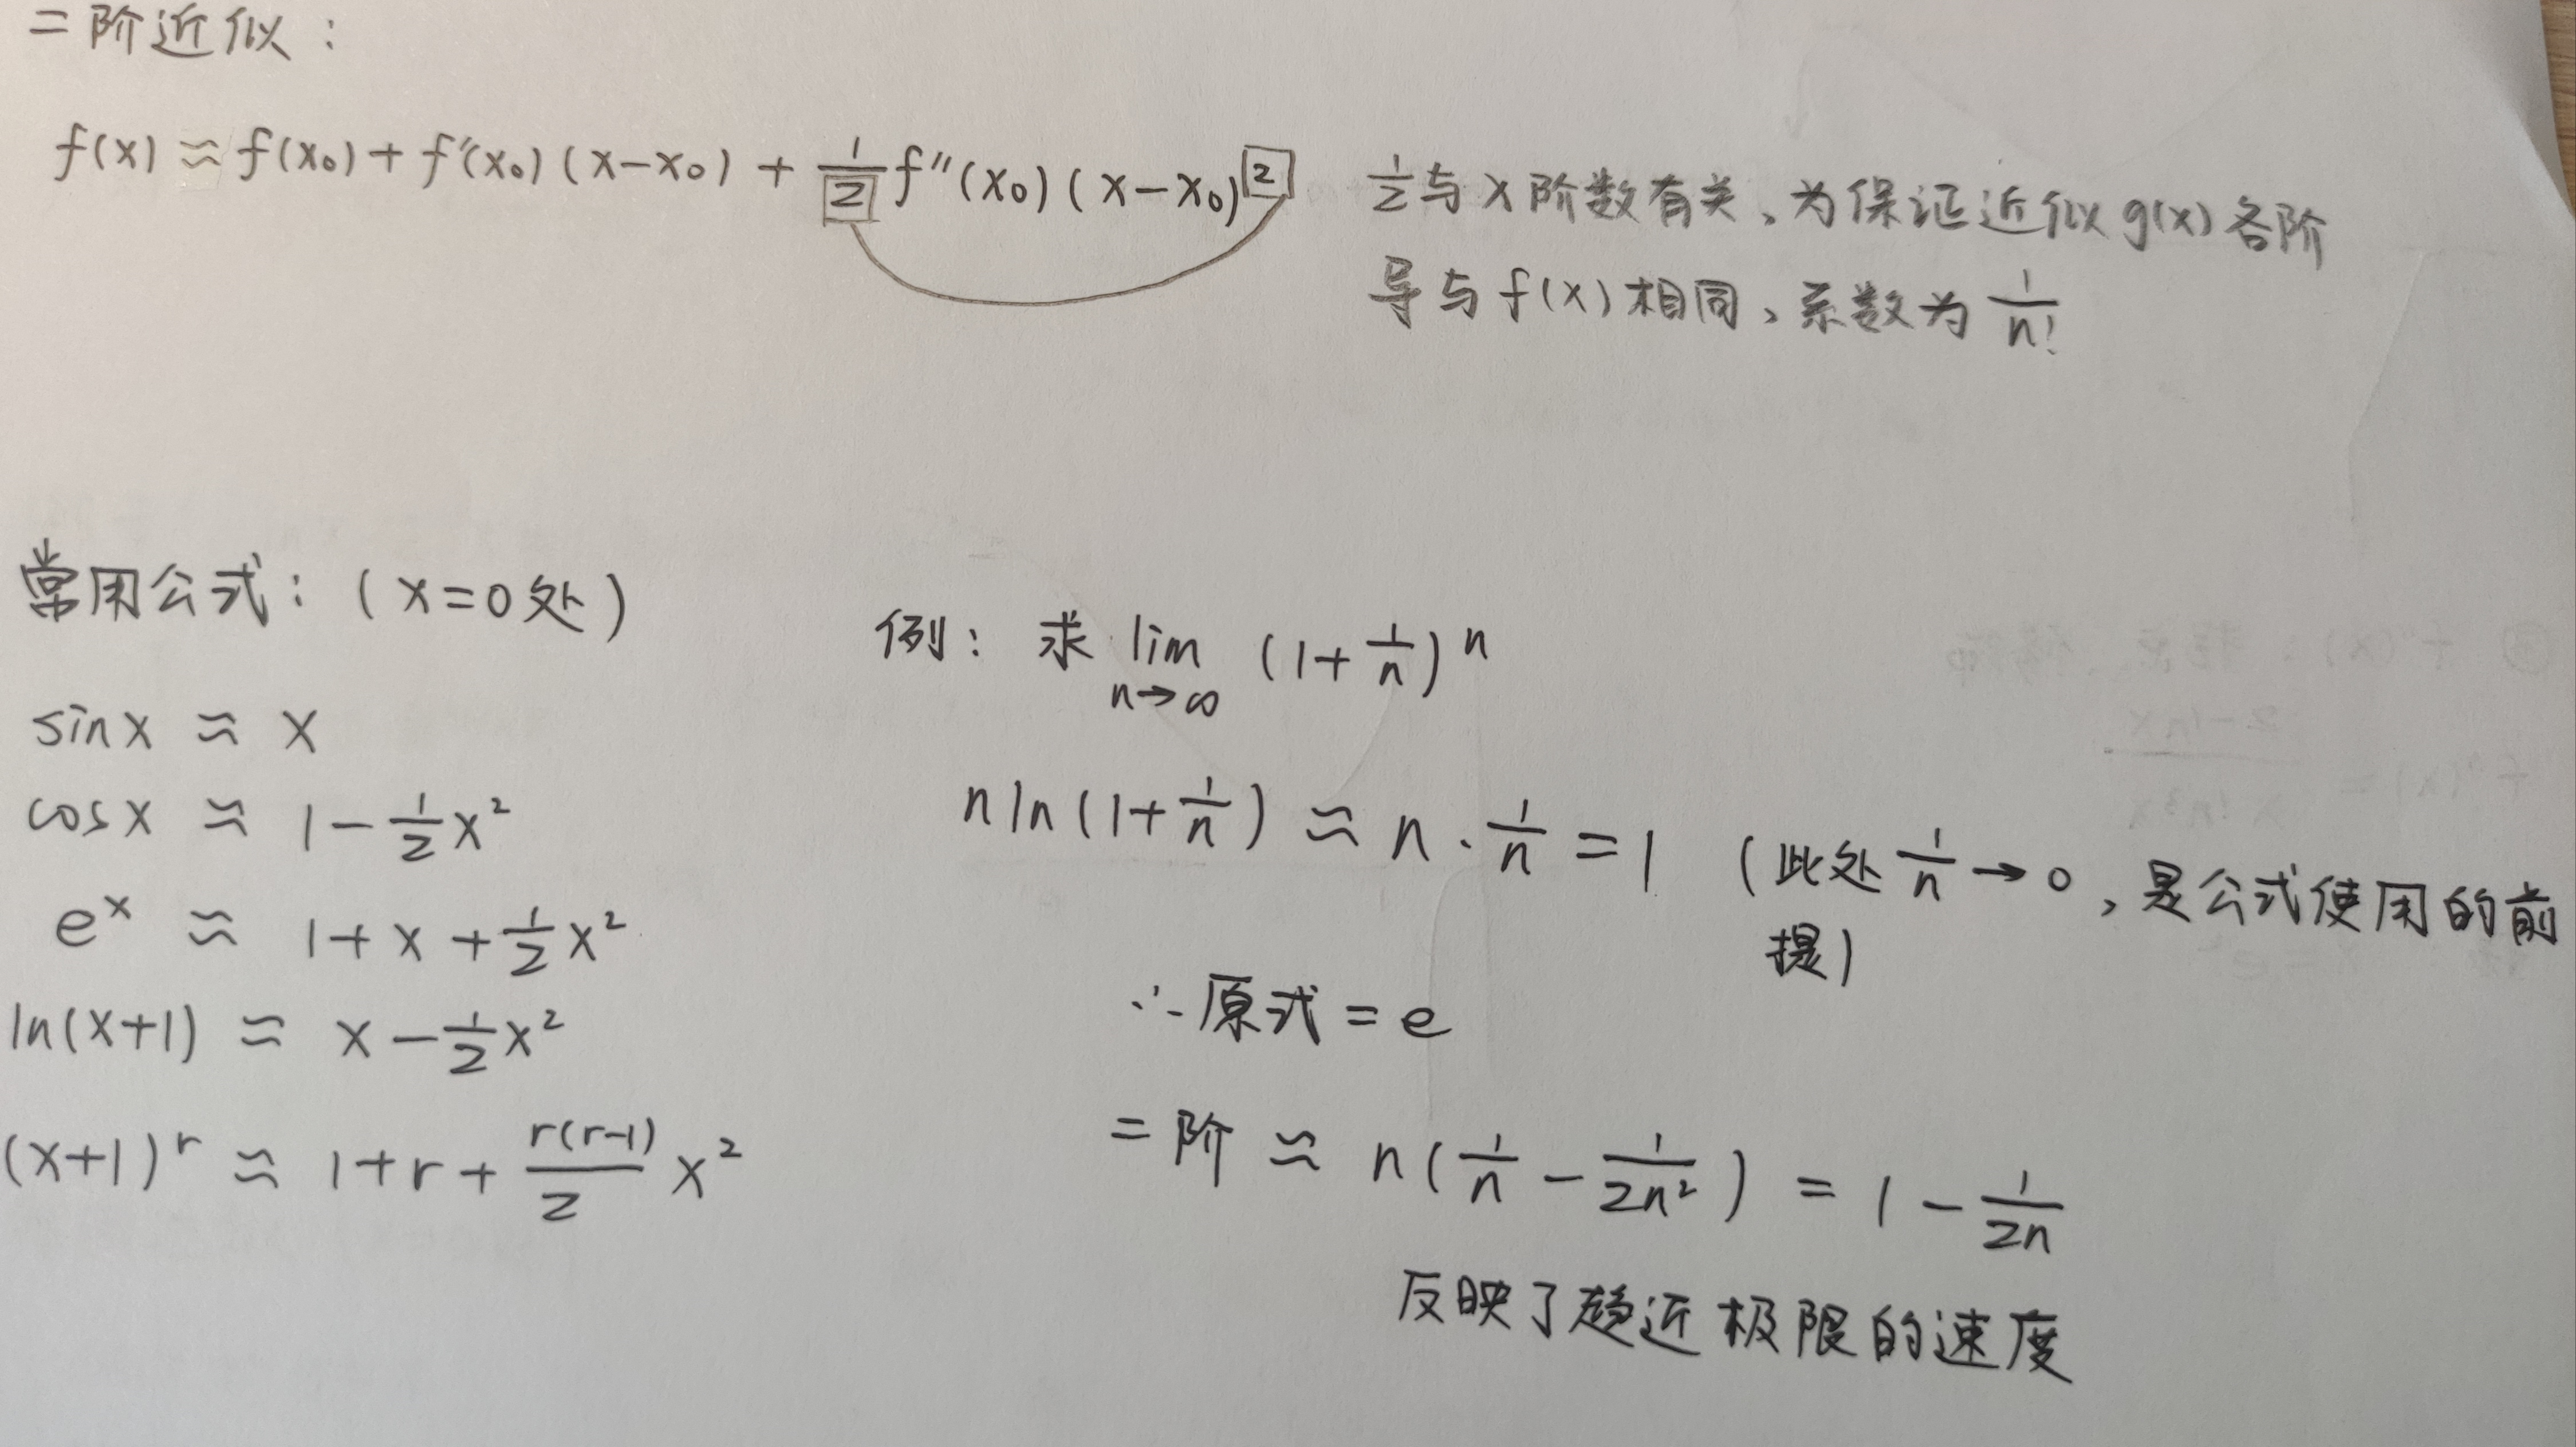 二阶近似：
f(x) ≈ f(x₀) + f′(x₀)(x−x₀) + 1/2 f″(x₀)(x−x₀)²
1/2与x阶数有关、为保证近似g(x)各阶
导与f(x)相同、系数为 1/n!
常用公式：（x=0处）
sinx ≈ x
cosx ≈ 1 − 1/2 x²
eˣ ≈ 1 + x + 1/2 x²
ln(x+1) ≈ x − 1/2 x²
(x+1)ʳ ≈ 1 + r + r(r−1)/2 x²
例：求 lim n→∞ (1+1/n)ⁿ
n ln(1+1/n) ≈ n·1/n = 1 （此处 1/n → 0，是公式使用的前
提）
∴原式 = e
二阶 ≈ n(1/n − 1/2n²) = 1 − 1/2n
反映了趋近极限的速度